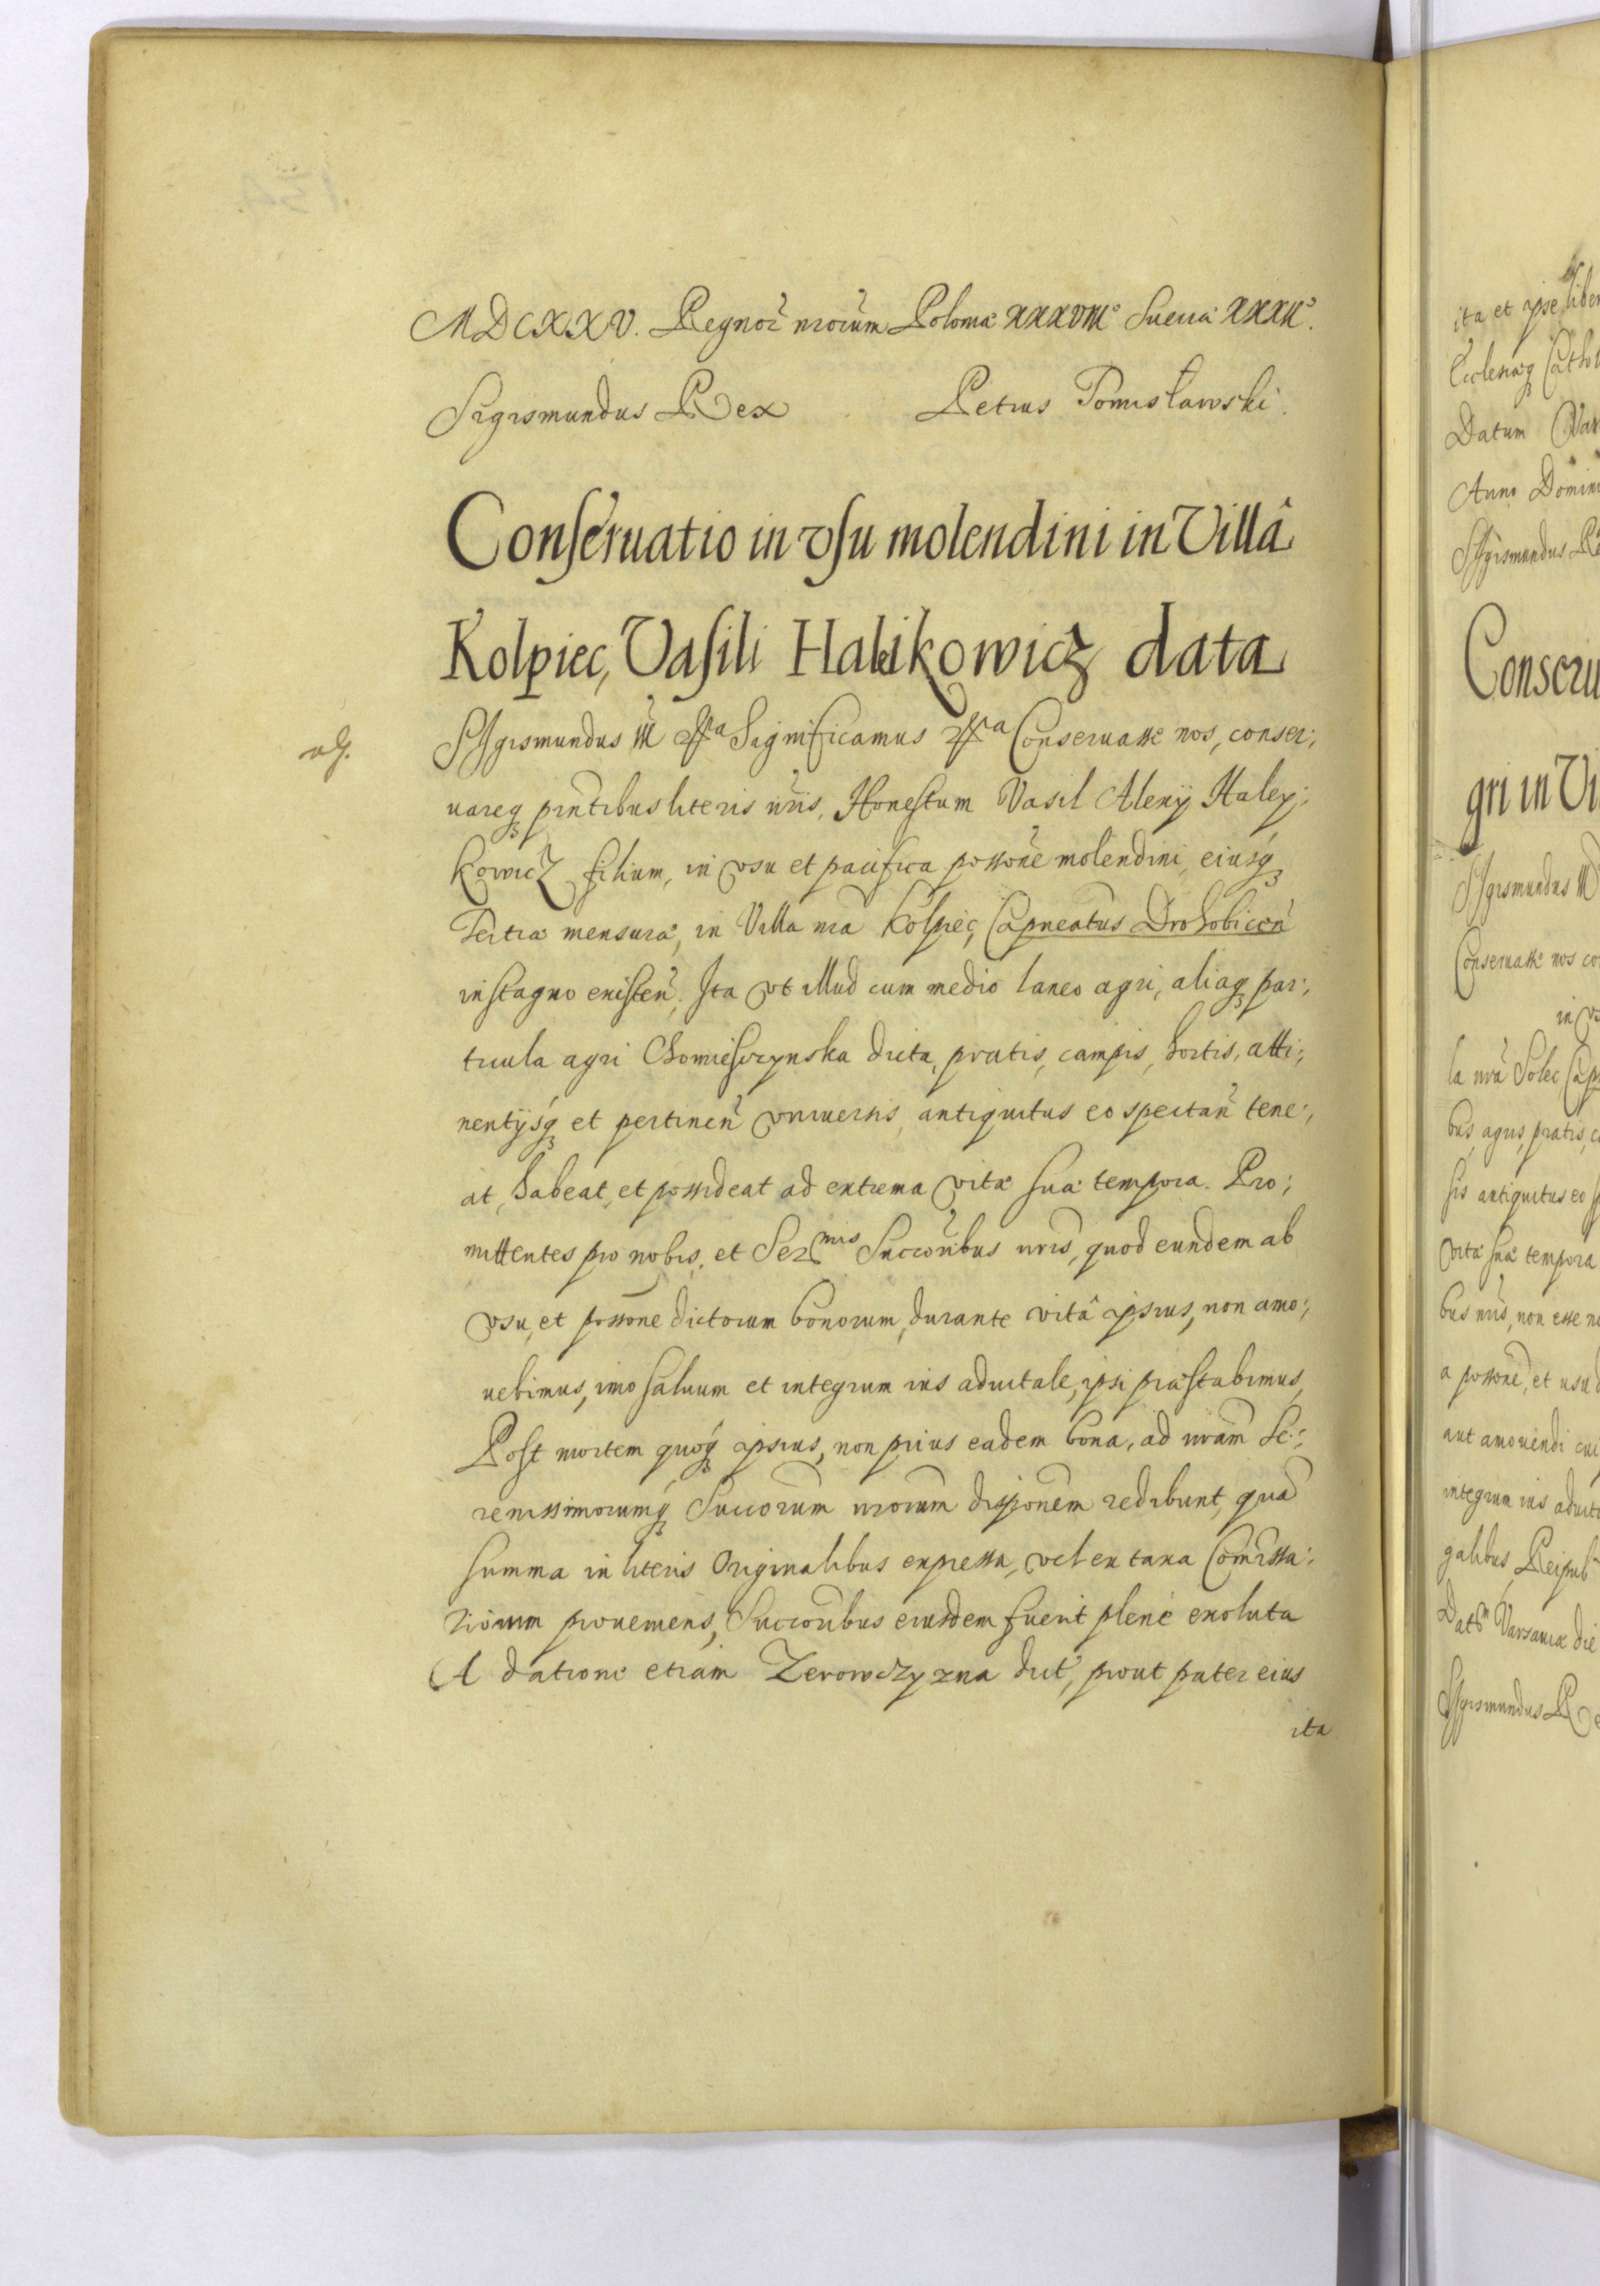 MDCXXV. Regnor̃ nror̃um Poloniæ XXXVIIIº Sueciæ XXXIIº.
Sigismundus Rex Petrus Tomisławski.
Conseruatio in vsu molendini in Villâ
Kolpiec, Vasili Halikowicz data
Sigismundus III Significamus Conseruasse nos, conser;
uareq̃ pñtibus literis nr̃is, Honestum Vasil Alexij Haley;
kowicz filium, in vsu et pacifica possone molendini, eiusq̃
Tertiæ mensuræ, in Villa nr̃a Kolpiec, Capneatus Drohobicen̄
in stagno existen̄, Ita vt illud cum medio laneo agri, aliaq̃ par;
ticula agri Chomiesczynska dicta, pratis, campis, hortis, atti;
nentijsq̃ et pertinen̄ vniuersis, antiquitus eo spectan̄ tene;
at, habeat, et possideat ad extrema vitæ suæ tempora. Pro;
mittentes pro nobis, et Serᵐⁱˢ Succoribus nr̃is, quod eundem ab
vsu, et possone dictorum bonorum, durante vitâ ipsius, non amo;
uebimus, imo saluum et integrum ius aduitale, ipsi præstabimus,
Post mortem quoq̃ ipsius, non prius eadem bona, ad nr̃am Se;
renissimorumq̃ Succorum nrorum disponem redibunt, quã
summa in literis Originalibus expressa, vel ex taxa Com̃issa;
riorum proueniens, Succoribus eiusdem fuerit plenè exoluta
A datione etiam Zerowczyzna dict, prout pater eius
ita
ita et ipse liber
Ecclesiæq̃ Cathol
Datum Var
Anno Domini
Sigismundus Re
Conseru
gri in Vi
Sigismundus III
Conseruasse nos co
in v
la nr̃a Solec, Cap
bus, agris, pratis, c
sis antiquitus eo s
vitæ suæ tempora
bus nr̃is, non esse n
a possone, et usu d
aut amouendi cui
integrum ius aduit
galibus Reipub
Datm Varsauiæ die
Sigismundus Re